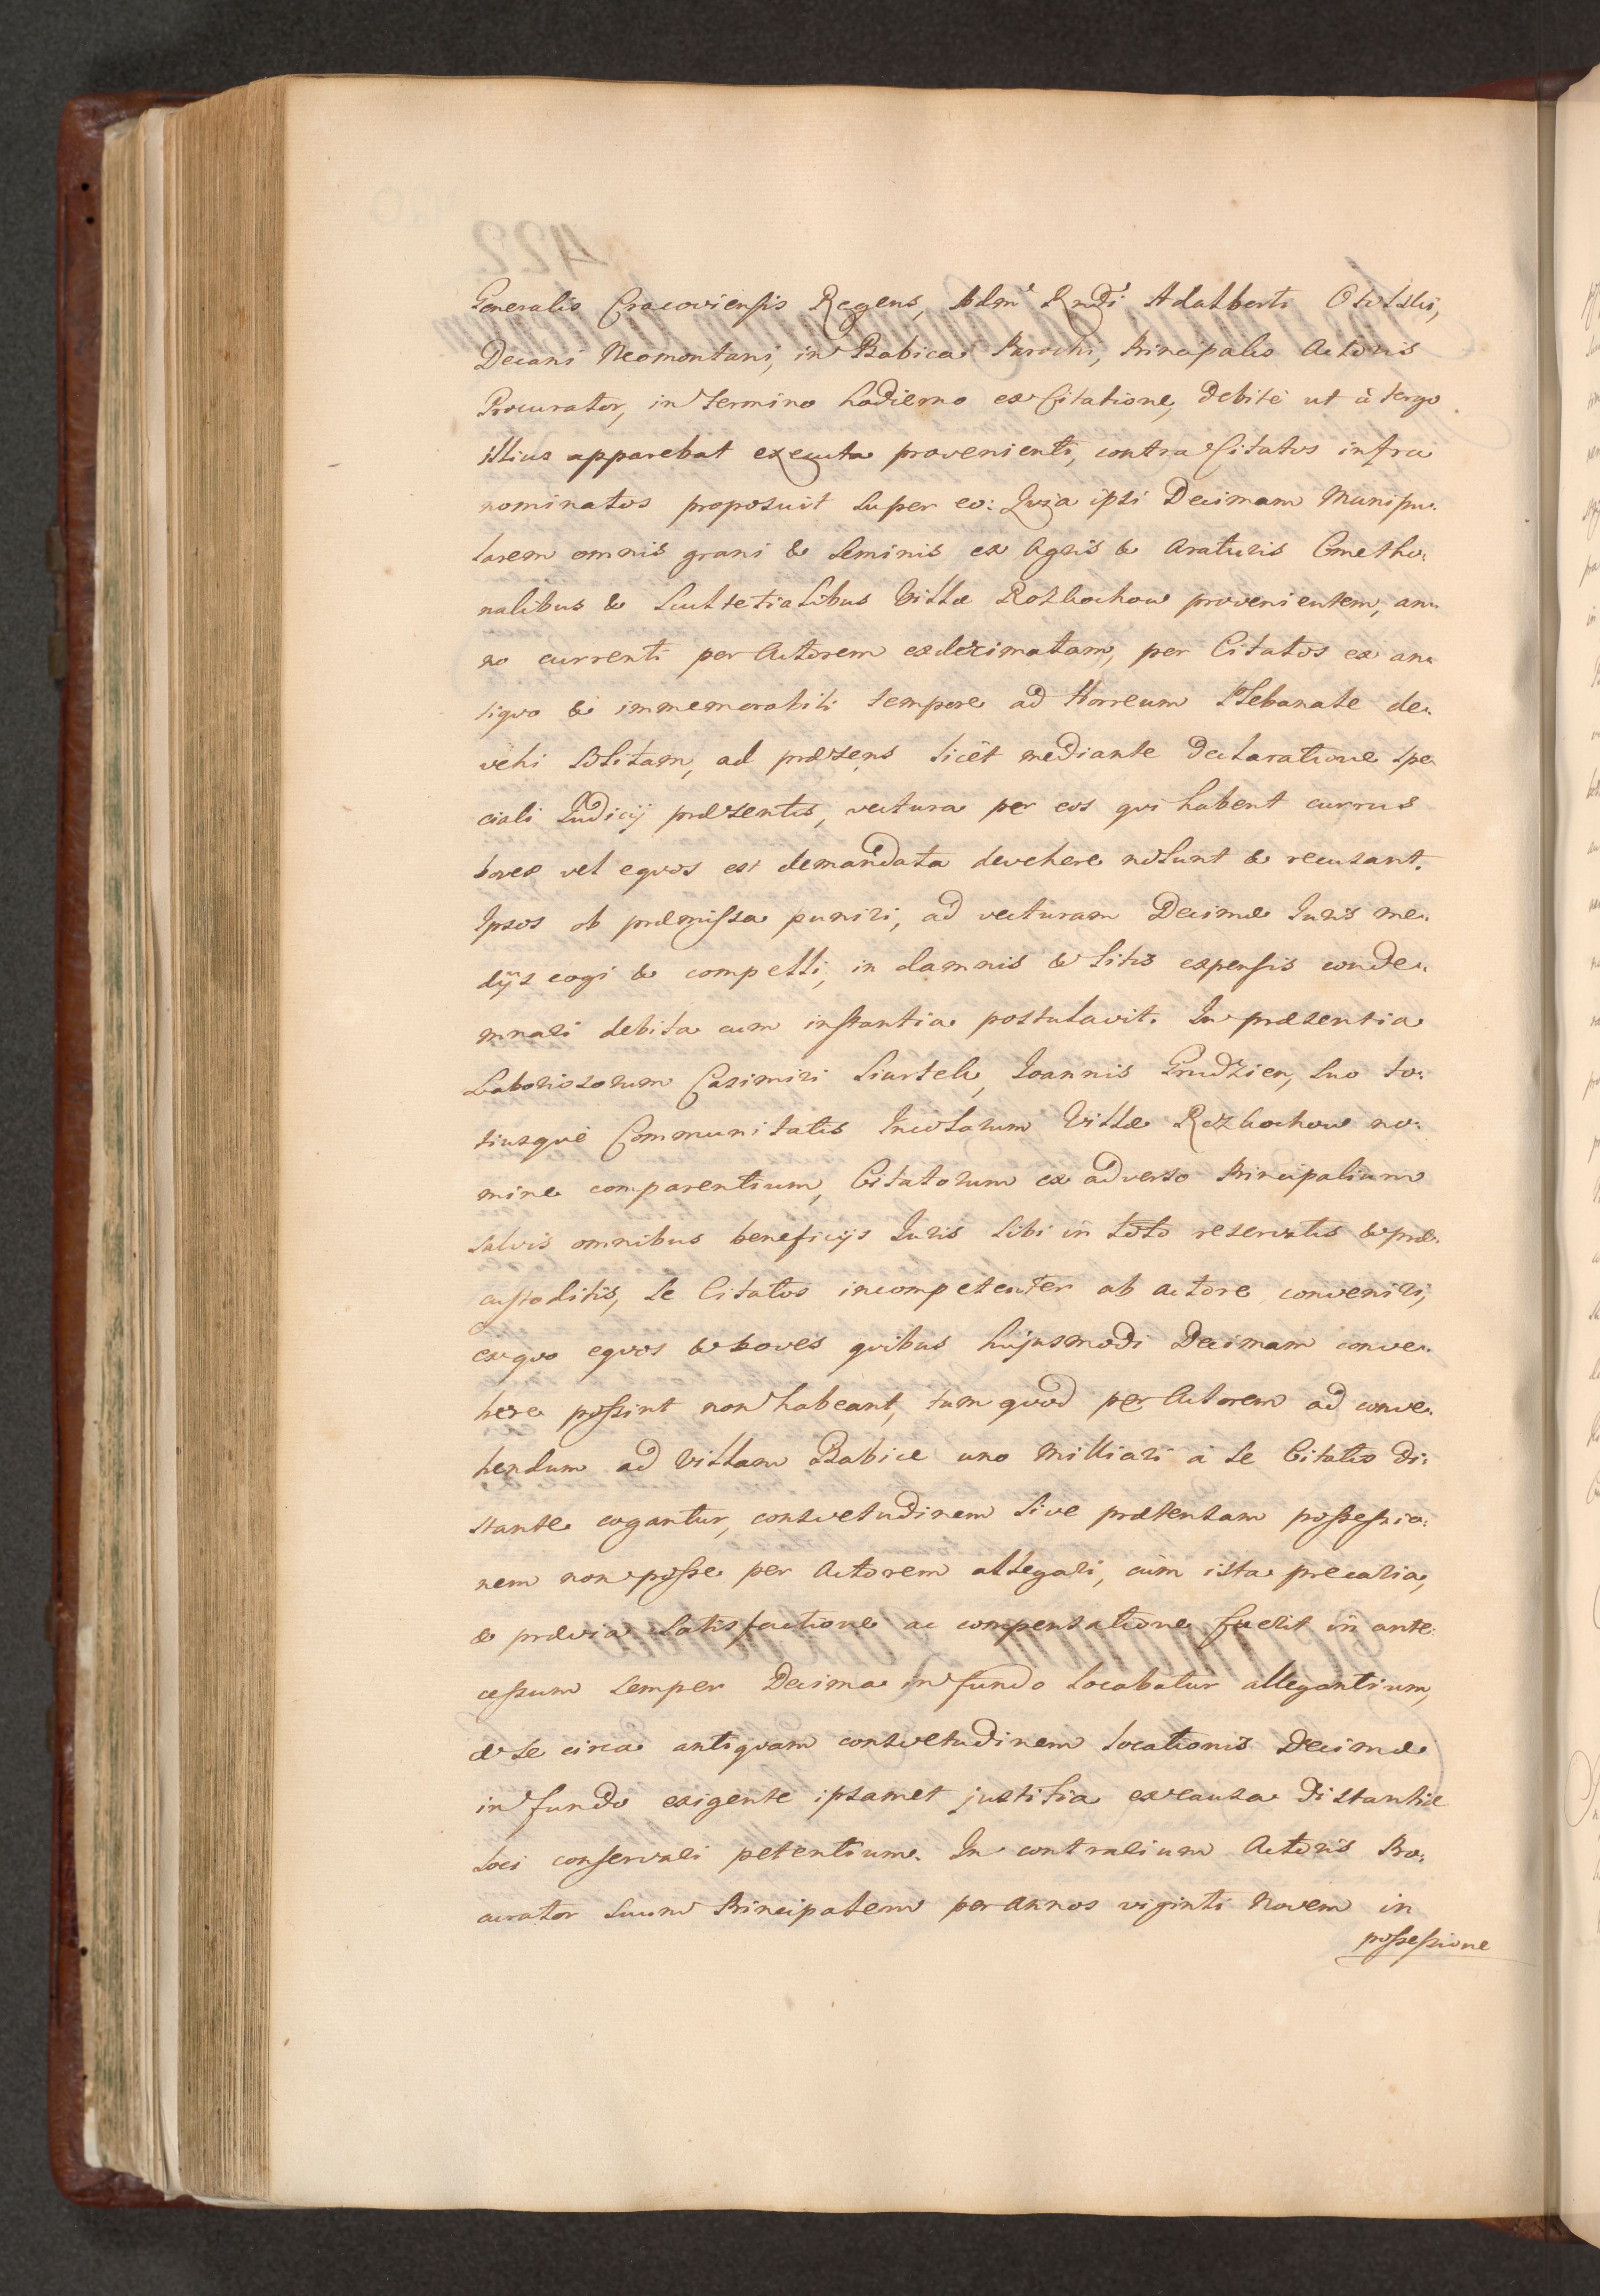 Generalis Cracoviensis Regens, Adm Rndi Adalberti
Decani Neomontani, in Babica Parochi, Principalis Actoris
Procurator, in termino hodierno ex Citatione, debitè ut à tergo
illius apparebat executa provenienti, contra Citatos infra
nominatos proposuit super eo: Quia ipsi Decimam Manipu:
larem omnis grani & seminis ex Agris & Araturis Cmetho:
nalibus & Scultetialibus Villæ Rozkochow provenientem, an:
no currenti per Actorem exdecimatam, per Citatos ex an:
tiquo & immemorabili tempore ad Horreum Plebanale de:
vehi solitam, ad præsens licèt mediante declaratione spe:
ciali Judicij præsentis, vectura per eos qui habent currus
boves vel equos est demandata devehere nolunt & recusant.
Ipsos ob præmissa puniri, ad vecturam Decimæ Juris me:
dijs cogi & compelli, in damnis & litis expensis conde:
mnari debita cum instantia postulavit. In præsentia
Laboriosorum Casimiri Siurtek, Joannis Grudzien, suo to:
tiusquè Communitatis Incolarum Villæ Rozkochow no:
mine comparentium, Citatorum ex adverso Principalium
salvis omnibus beneficijs Juris sibi in toto reservatis & præ:
custoditis, se Citatos incompetenter ab Actore conveniri,
ex quo equos & boves quibus hujusmodi Decimam conve:
here possint non habeant, tum quod per Actorem ad conve:
hendum ad Villam Babice uno milliari à se Citatis di:
stante cogantur, consvetudinem sive prætensam possessio:
nem non posse per Actorem allegari, cùm ista precaria,
& prævia satisfactione ac compensatione fuerit in ante:
cessum semper Decima in fundo locabatur allegantium,
& se circa antiquam consvetudinem locationis Decimæ
in fundo exigente ipsamet justitia ex causa distantiæ
loci conservari petentium. In contrarium Actoris Pro:
curator suum Principalem per annos viginti novem in
possessione